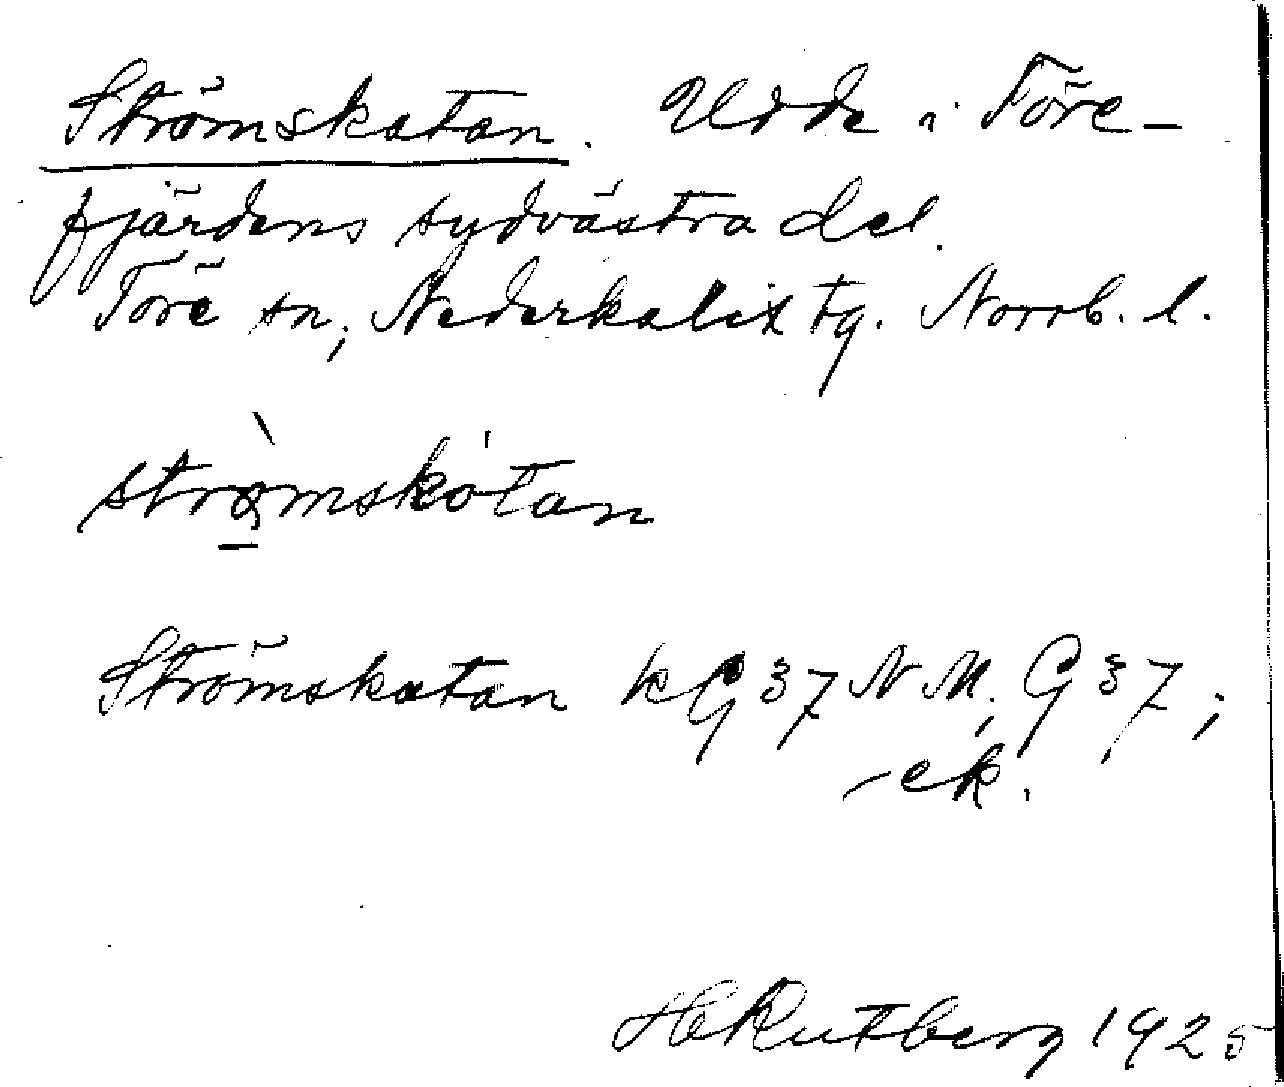 Strömskatan. Udde i Töre-
fjärdens sydvästra del.
Töre sn, Nederkalix tg. Norrb. l.
strømskotan
Strömskatan kG37NM, G37;
-ek.
H Rutberg 1925